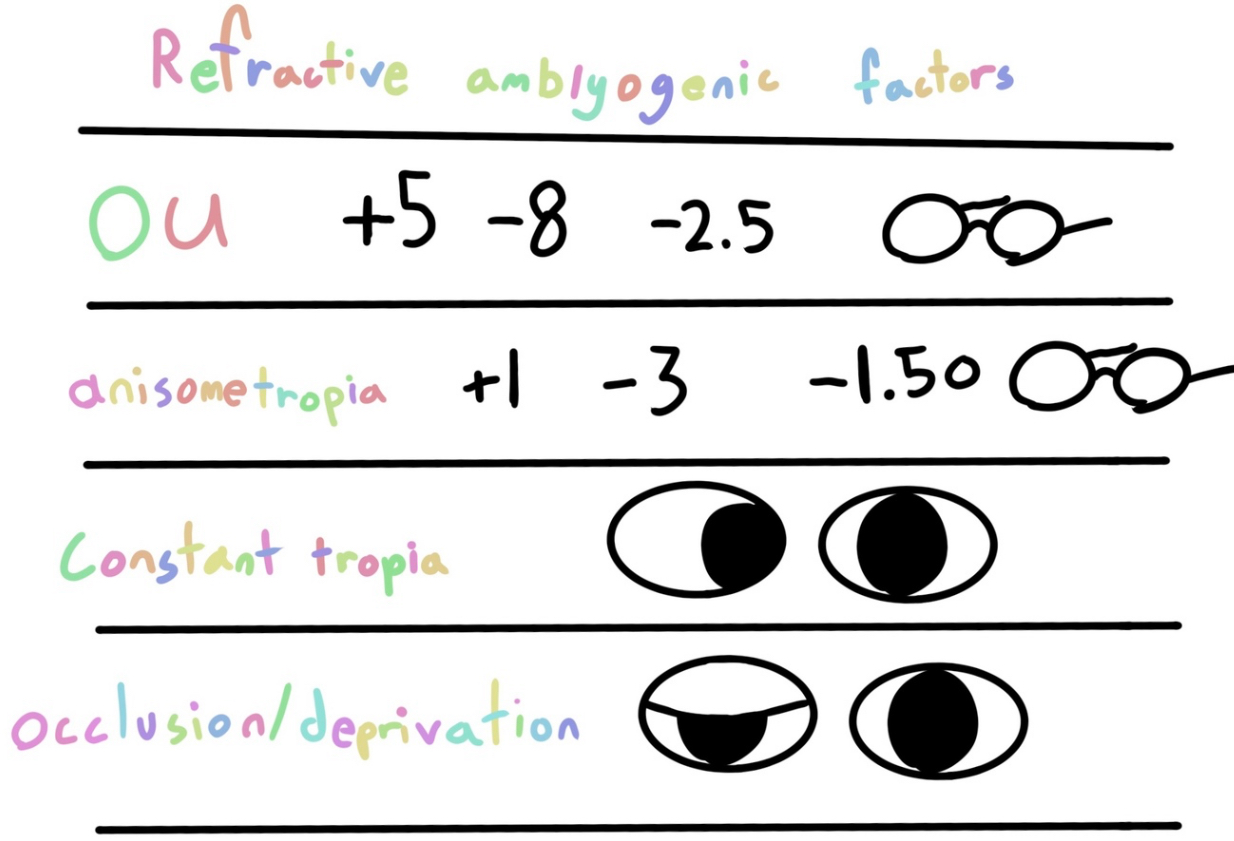 Refractive amblyogenic factors
OU +5 -8 -2.5
anisometropia +1 -3 -1.50
Constant tropia
occlusion/deprivation